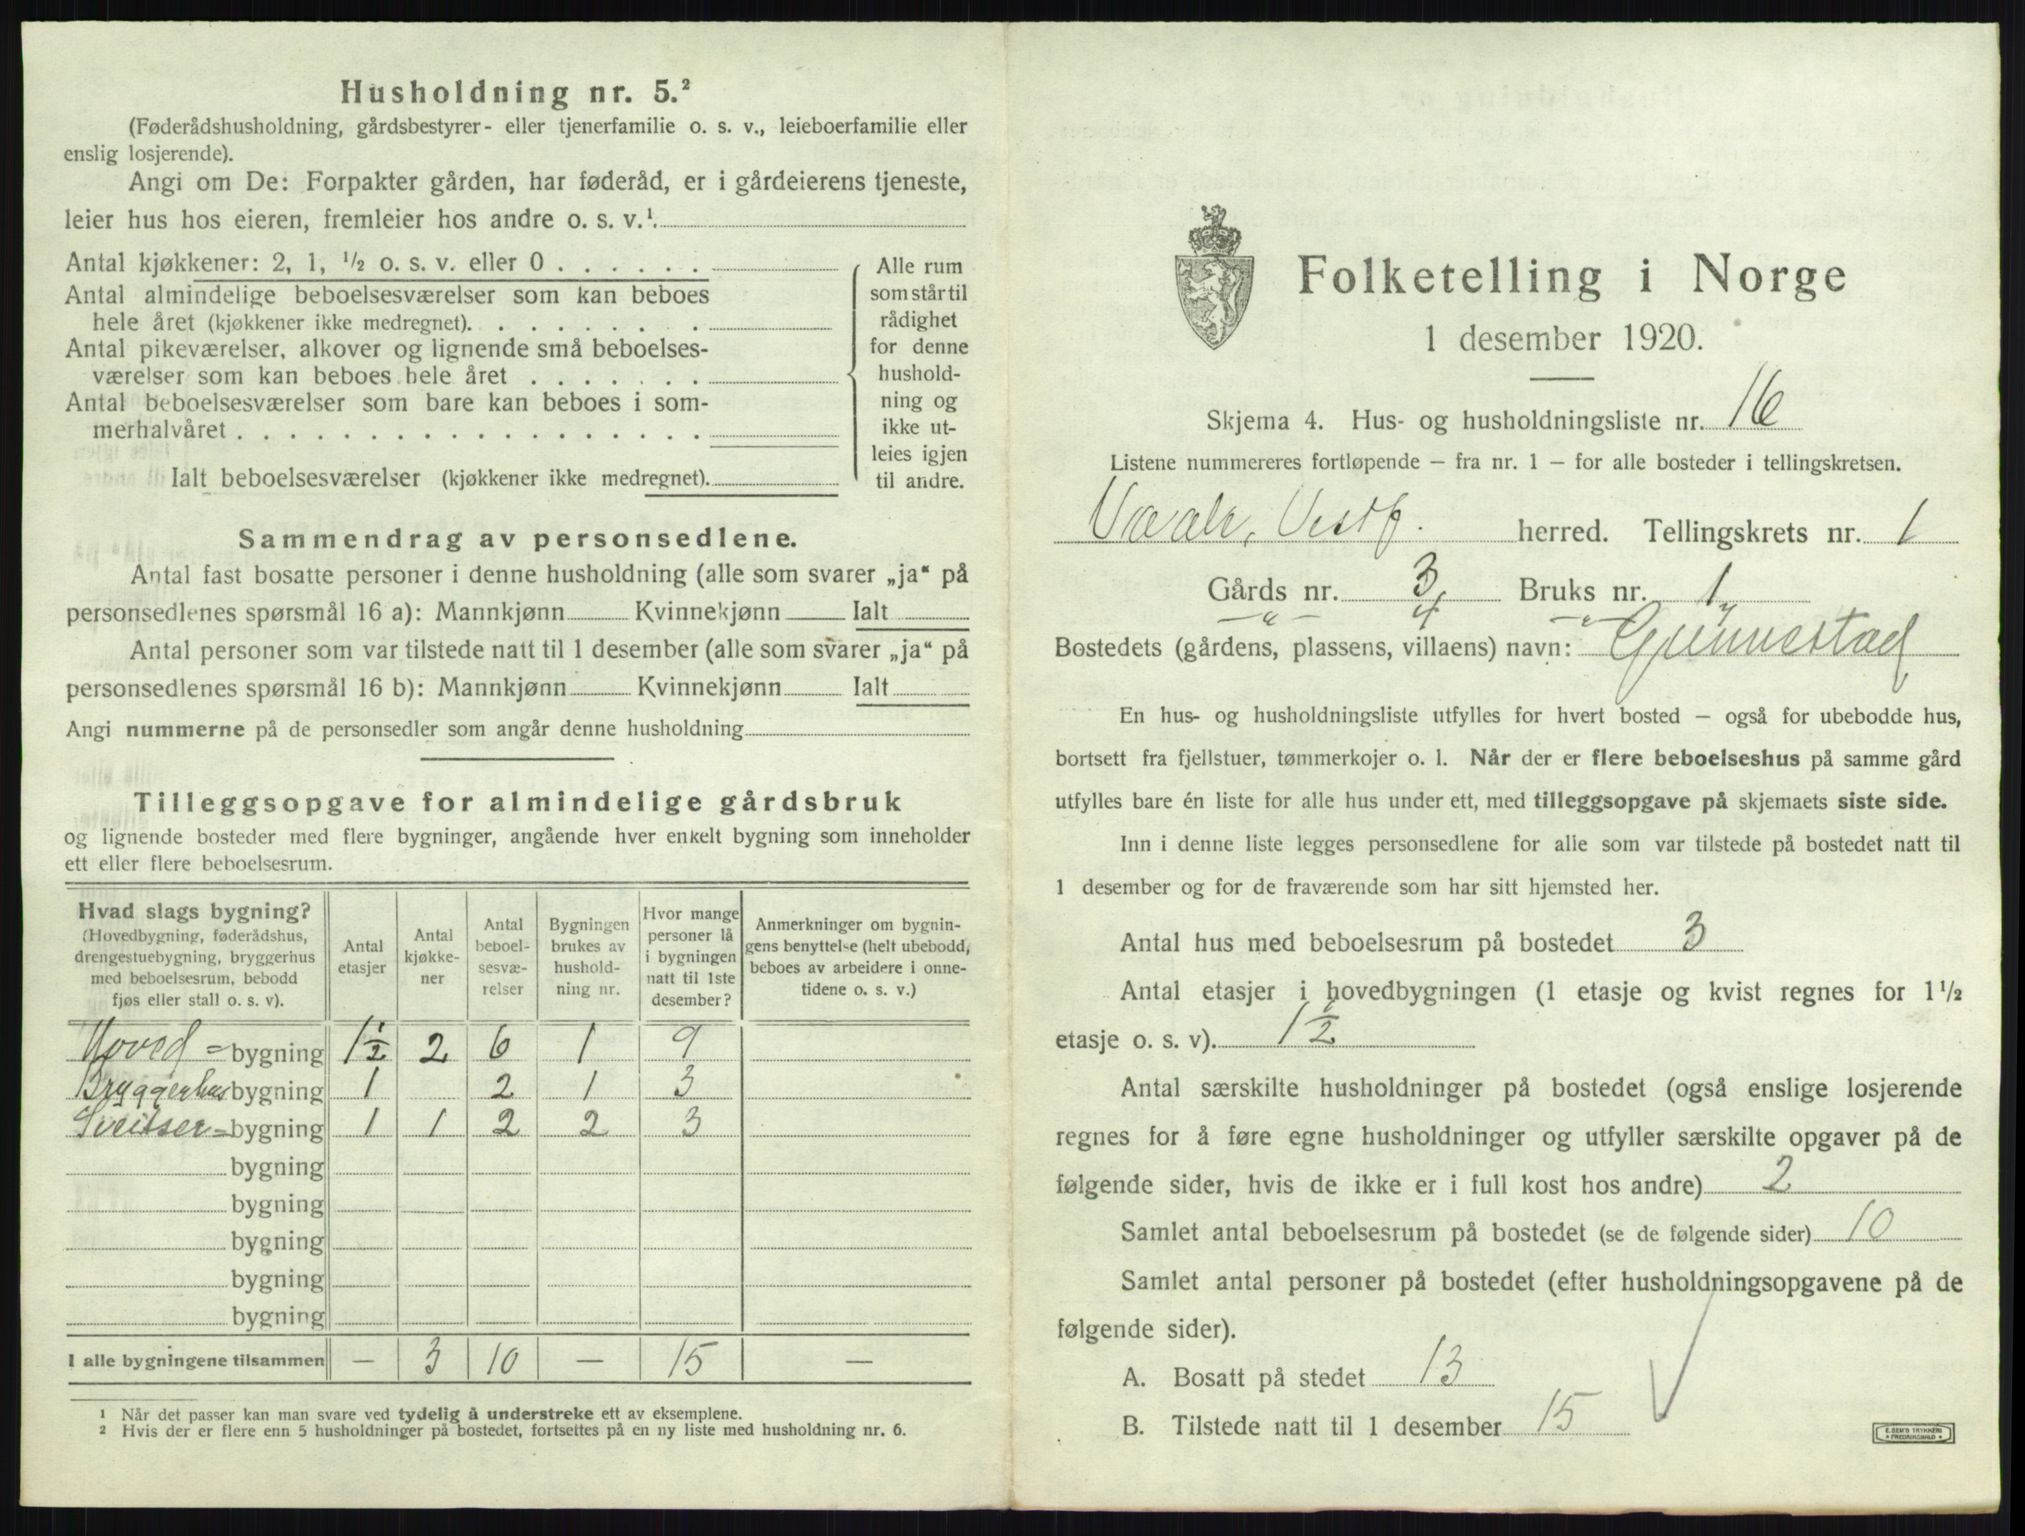 Husholdning nr. 5.²
(Føderådshusholdning, gårdsbestyrer- eller tjenerfamilie o. s. v., leieboerfamilie eller
enslig losjerende).
Angi om De: Forpakter gården, har føderåd, er i gårdeierens tjeneste,
leier hus hos eieren, fremleier hos andre o. s. v.¹.
Antal kjøkkener: 2, 1, ½ o. s. v. eller 0 . . . . . .
Antal almindelige beboelsesværelser som kan beboes
hele året (kjøkkener ikke medregnet). . . . . . . .
Antal pikeværelser, alkover og lignende små beboelses-
værelser som kan beboes hele året . . . . . . .
Antal beboelsesværelser som bare kan beboes i som-
merhalvåret . . . . . . . . . . . . . . . . . .
Ialt beboelsesværelser (kjøkkener ikke medregnet).
Alle rum
som står til
rådighet
for denne
hushold-
ning og
ikke ut-
leies igjen
til andre.
Sammendrag av personsedlene.
Antal fast bosatte personer i denne husholdning (alle som svarer „ja“ på
personsedlenes spørsmål 16 a): Mannkjønn Kvinnekjønn Ialt
Antal personer som var tilstede natt til 1 desember (alle som svarer „ja“ på
personsedlenes spørsmål 16 b): Mannkjønn Kvinnekjønn Ialt
Angi nummerne på de personsedler som angår denne husholdning
Tilleggsopgave for almindelige gårdsbruk
og lignende bosteder med flere bygninger, angående hver enkelt bygning som inneholder
ett eller flere beboelsesrum.
Hvad slags bygning?
(Hovedbygning, føderådshus,
drengestuebygning, bryggerhus
med beboelsesrum, bebodd
fjøs eller stall o. s. v).
Antal
etasjer
Antal
kjøkke-
ner
Antal
beboel-
sesvæ-
relser
Bygningen
brukes av
hushold-
ning nr.
Hvor mange
personer lå
i bygningen
natt til 1ste
desember?
Anmerkninger om bygnin-
gens benyttelse (helt ubebodd,
beboes av arbeidere i onne-
tidene o. s. v.)
Hoved = bygning 1½ 2 6 1 9
Bryggerhus bygning 1 2 1 3
Sveitser = bygning 1 1 2 2 3
bygning
bygning
bygning
bygning
bygning
I alle bygningene tilsammen — 3 10 — 15 —
¹ Når det passer kan man svare ved tydelig å understreke ett av eksemplene.
² Hvis der er flere enn 5 husholdninger på bostedet, fortsettes på en ny liste med husholdning nr. 6.
Folketelling i Norge
1 desember 1920.
Skjema 4. Hus- og husholdningsliste nr. 16
Listene nummereres fortløpende — fra nr. 1 — for alle bosteder i tellingskretsen.
Vaale, Vestf. herred. Tellingskrets nr. 1
Gårds nr. 3, Bruks nr. 1
— „ — 4 — „ — „
Bostedets (gårdens, plassens, villaens) navn: Gunnestad
En hus- og husholdningsliste utfylles for hvert bosted — også for ubebodde hus,
bortsett fra fjellstuer, tømmerkojer o. l. Når der er flere beboelseshus på samme gård
utfylles bare én liste for alle hus under ett, med tilleggsopgave på skjemaets siste side.
Inn i denne liste legges personsedlene for alle som var tilstede på bostedet natt til
1 desember og for de fraværende som har sitt hjemsted her.
Antal hus med beboelsesrum på bostedet 3
Antal etasjer i hovedbygningen (1 etasje og kvist regnes for 1½
etasje o. s. v). 1½
Antal særskilte husholdninger på bostedet (også enslige losjerende
regnes for å føre egne husholdninger og utfyller særskilte opgaver på de
følgende sider, hvis de ikke er i full kost hos andre) 2
Samlet antal beboelsesrum på bostedet (se de følgende sider) 10
Samlet antal personer på bostedet (efter husholdningsopgavene på de
følgende sider).
A. Bosatt på stedet 13
B. Tilstede natt til 1 desember 15
E. SEM'S TRYKKERI
FREDRIKSHALD